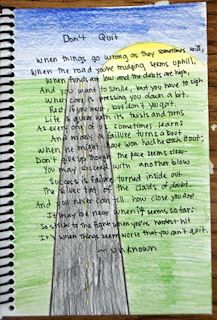 Don't Quit
When things go wrong as they sometimes will,
When the road you're trudging seems uphill,
When funds are low and the debts are high,
And you want to smile, but you have to sigh
When care is pressing you down a bit,
Rest if you must, but don't you quit.
Life is queer with its twists and turns
As every one of us sometimes learns
And many a failure turns about
When he might have won had he stuck it out:
Don't give up though the pace seems slow-
You may succeed with another blow
Success is failure turned inside out
The silver tint of the clouds of doubt
And you never can tell how close you are
It may be near when it seems so far:
So stick to the fight when you're hardest hit
It's when things seem worst that you can't quit.
~ unknown